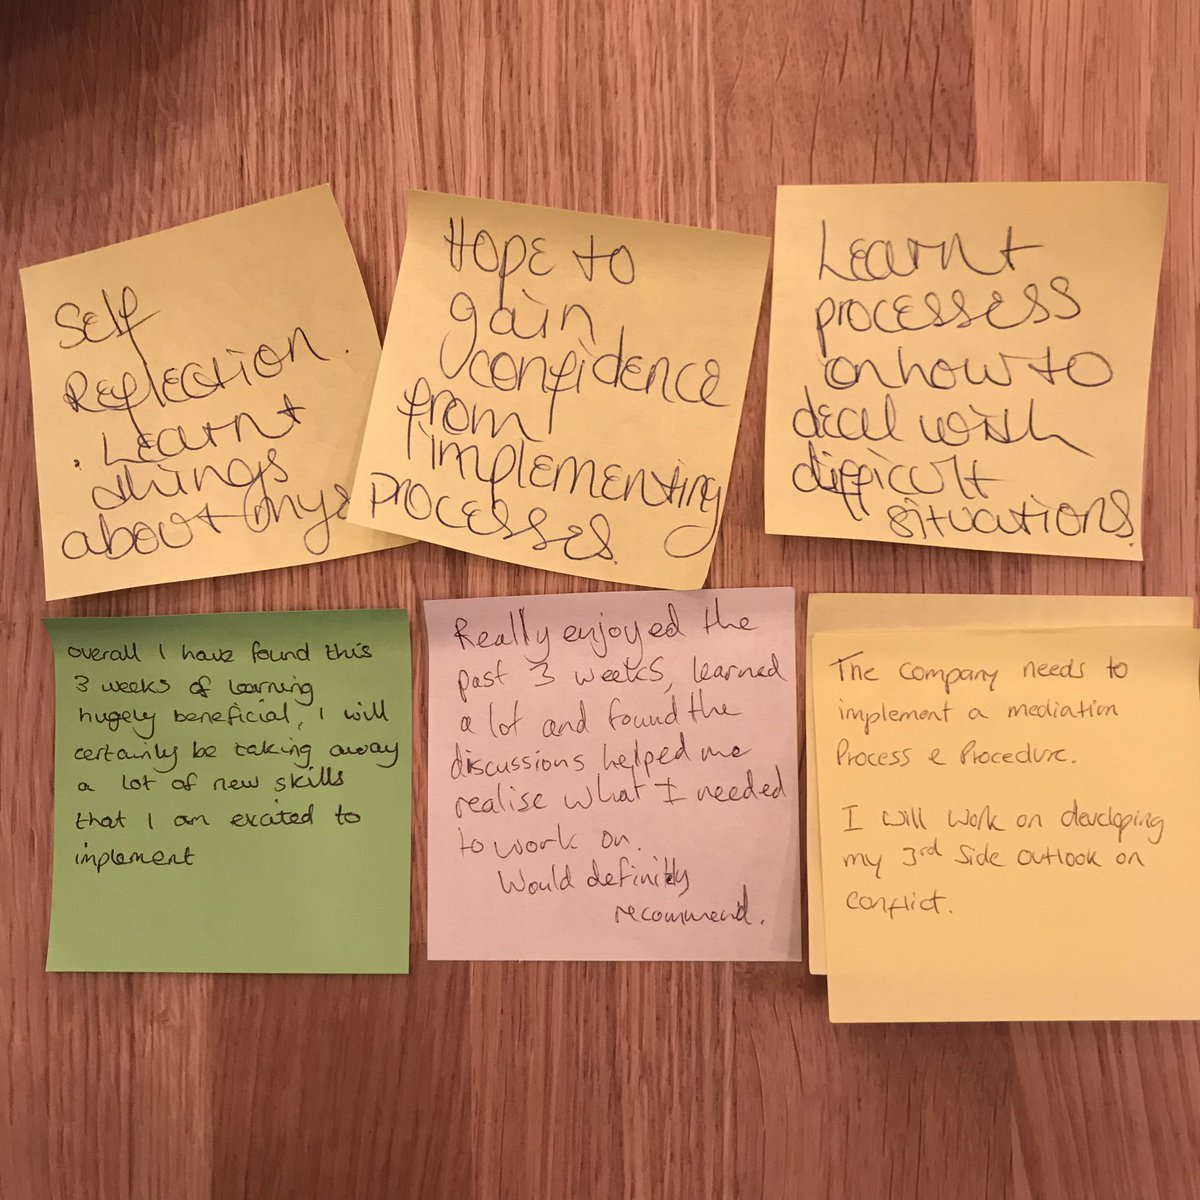 Self
Reflection.
. Learnt
things
about mys
Hope to
gain
confidence
from
implementing
processes.
Learnt
processess
on how to
deal with
difficult
situations.
overall I have found this
3 weeks of learning
hugely beneficial, I will
certainly be taking away
a lot of new skills
that I am excited to
implement
Really enjoyed the
past 3 weeks, learned
a lot and found the
discussions helped me
realise what I needed
to work on.
Would definitely
recommend.
The company needs to
implement a mediation
Process & Procedure.
I will work on developing
my 3rd Side outlook on
conflict.